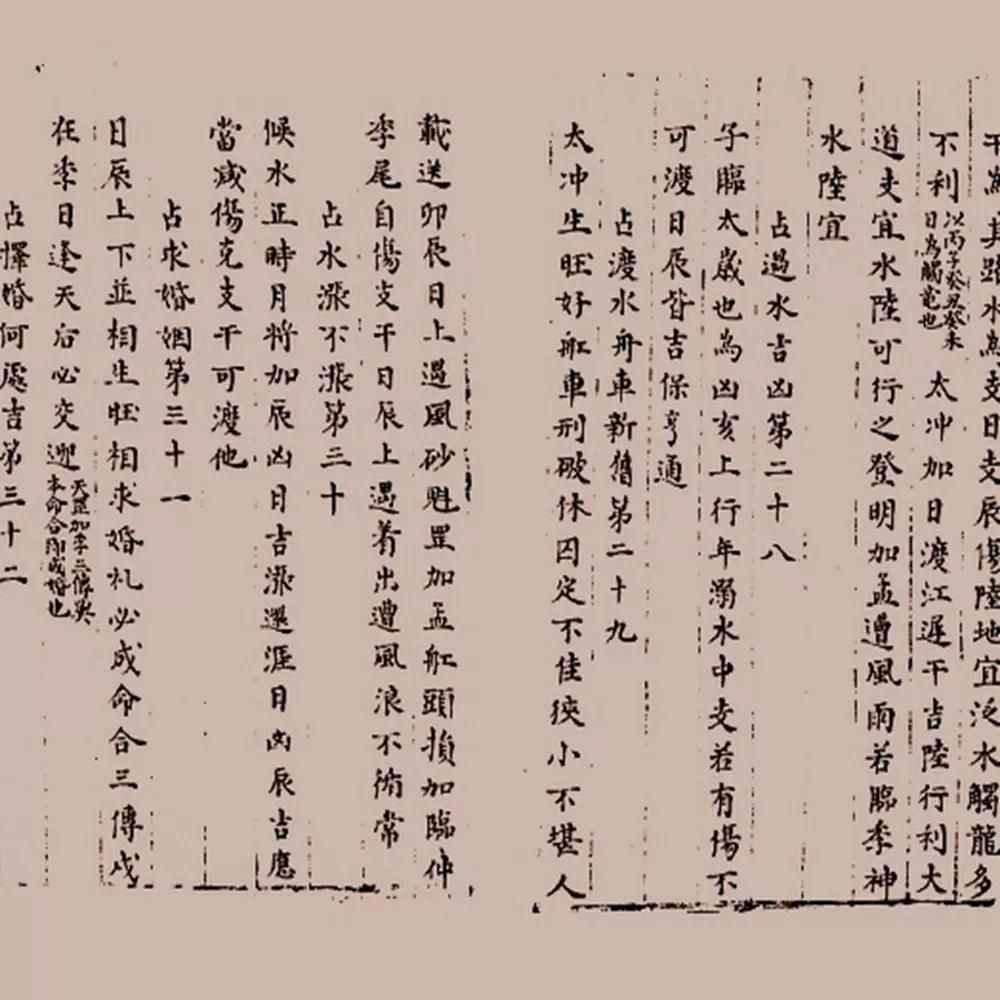 干為其路水為支日支辰傷陸地宜泛水觸龍多
不利以丙子癸丑癸未日為觸龍也太冲加日渡江遲干吉陸行利大
道支宜水陸可行之登明加孟遭風雨若臨季神
水陸宜
占過水吉凶第二十八
子臨太歲也為凶亥上行年溺水中支若有傷不
可渡日辰皆吉保亨通
占渡水舟車新舊第二十九
太冲生旺好舡車刑破休囚定不佳狹小不堪人
載送卯辰日上遇風砂魁罡加孟舡頭損加臨仲
季尾自傷支干日辰上遇着出遭風浪不徜常
占水漲不漲第三十
候水正時月將加辰凶日吉漲還涯日凶辰吉應
當減傷克支干可渡他
占求婚姻第三十一
日辰上下並相生旺相求婚礼必成命合三傳戊
在季日逢天后必交迎天罡加季三傳與本命合即成婚也
占擇婚何處吉第三十二